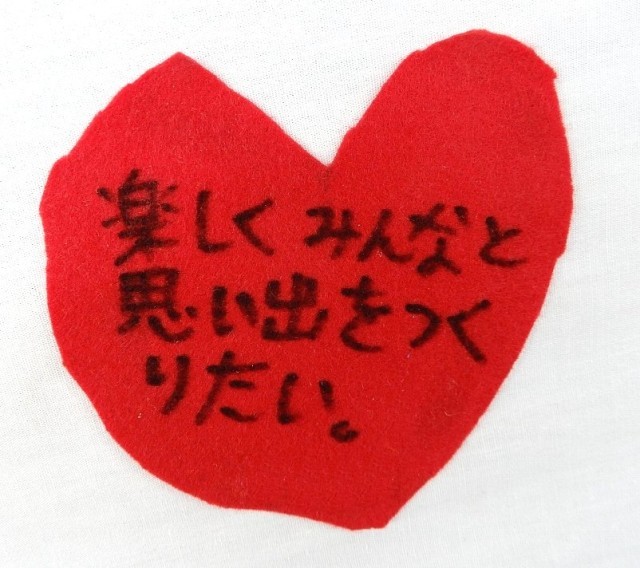 楽しくみんなと
思い出をつく
りたい。